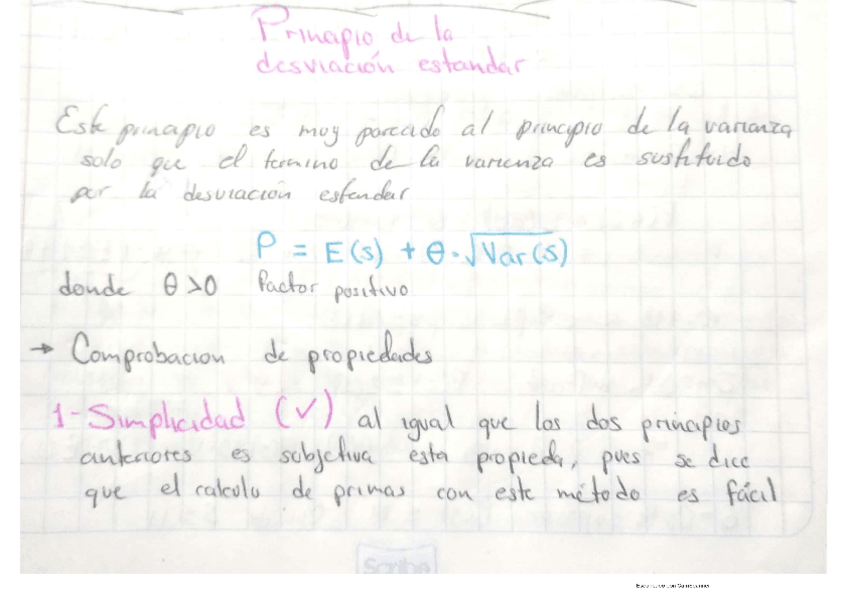 Principio de la
desviación estandar
Este principio es muy parecido al principio de la varianza
solo que el termino de la varienza es sustituido
por la desviación estandar
P = E(s) + θ·√Var(s)
donde θ>0 factor positivo
→ Comprobacion de propiedades
1- Simplicidad (✓) al igual que los dos principios
anteriores es subjetiva esta propieda, pues se dice
que el calculo de primas con este método es fácil
Scribe
Escaneado con CamScanner